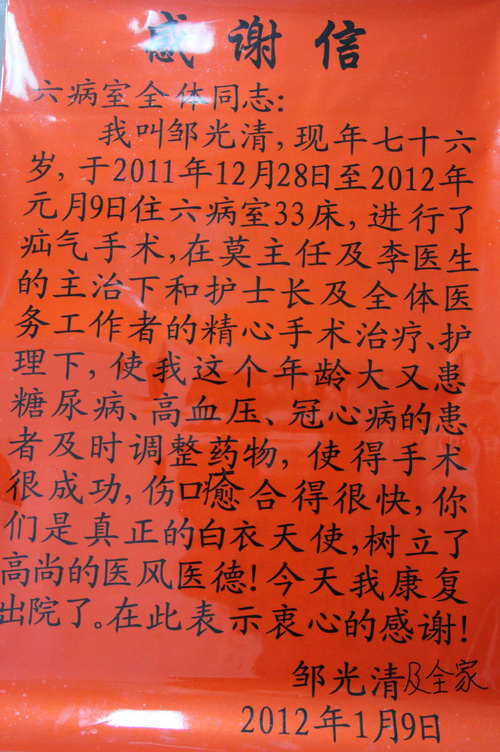 感谢信
六病室全体同志：
我叫邹光清，现年七十六
岁，于2011年12月28日至2012年
元月9日住六病室33床，进行了
疝气手术，在莫主任及李医生
的主治下和护士长及全体医
务工作者的精心手术治疗、护
理下，使我这个年龄大又患
糖尿病、高血压、冠心病的患
者及时调整药物，使得手术
很成功，伤口癒合得很快，你
们是真正的白衣天使，树立了
高尚的医风医德！今天我康复
出院了。在此表示衷心的感谢！
邹光清及全家
2012年1月9日